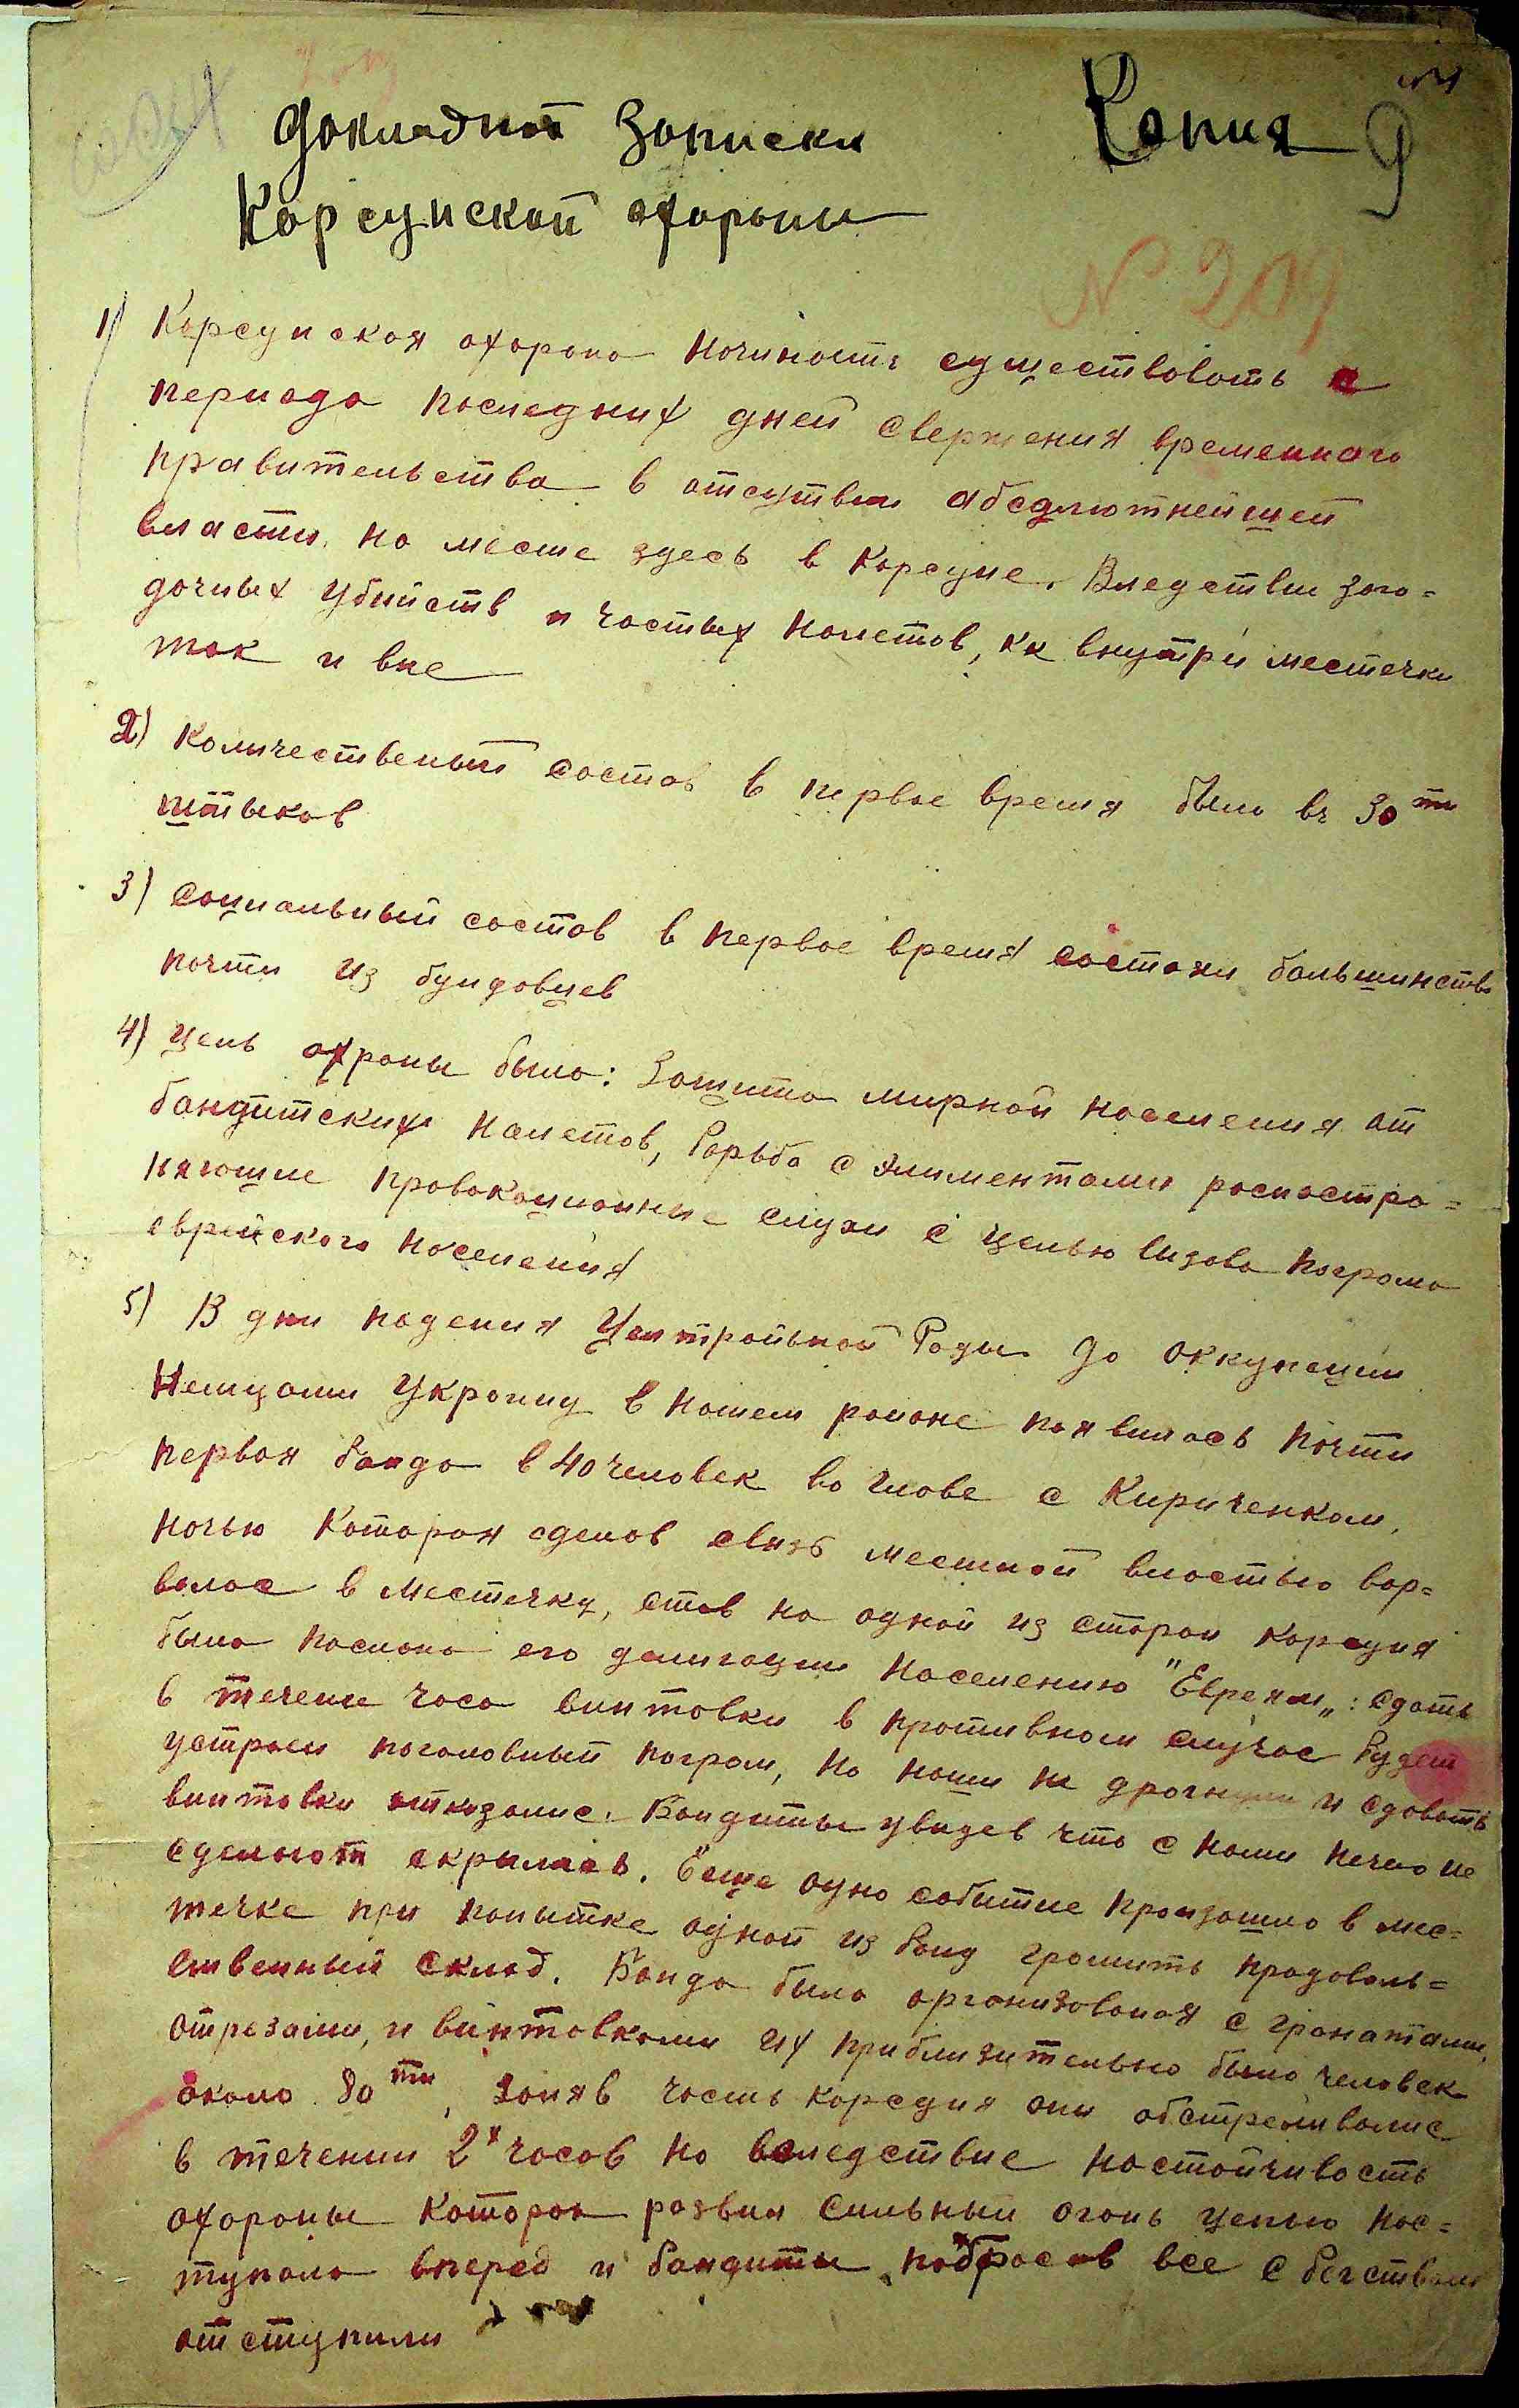 Докладной Записки
Копия
9
Корсунской охороны
N 204
1) Корсунская охорона начинаеть существовать с
периода последних дней свержения временного
правительства в отсутвии абсолютнейшей
власти на месте здесь в Корсуне. Вледствии зага=
дочных убийств и частых налетов, кк внутри местечки
так и вне
2) Количественый состав в первое время было въ 30ти
штыков
3) Социальный состав в первое время состояли большинство
почти из бундовцев
4) Цель охроны было: Защита мирной населения от
бандитских налетов, борьба с элиментами распостра=
няющие провокационные слухи с целью визова погрома
еврейского населения
5) В дни падения Центральной Рады до оккупации
Немцами Украину в нашем районе появилась почти
первая банда в 40 человек во главе с Кириченком,
ночью которая сделав связь местной властью вор=
валас в местечку, став на одной из сторон Корсуня
была послана его делигации населению "Евреям„: сдать
в течене часа винтовки в противном случае будет
устроен поголовный погром, но наши не дрогнули и сдавать
винтовки отказалис. Бандиты увидев что с нами нечего не
сделают скрылась. Еще одно событие произошло в мес=
течке при попытке одной из банд громить продоволь=
ственный склад. Банда была организованая с гранатами,
отрезами, и винтовками их приблизительно было человек
около 80ти, заняв часть Корсуня они обстреливалис
в течении 2х часов но вследствие настойчивость
охороны которая развил сильный огонь цепью нас=
тупала вперед и бандиты побросав все с бегством
отступили